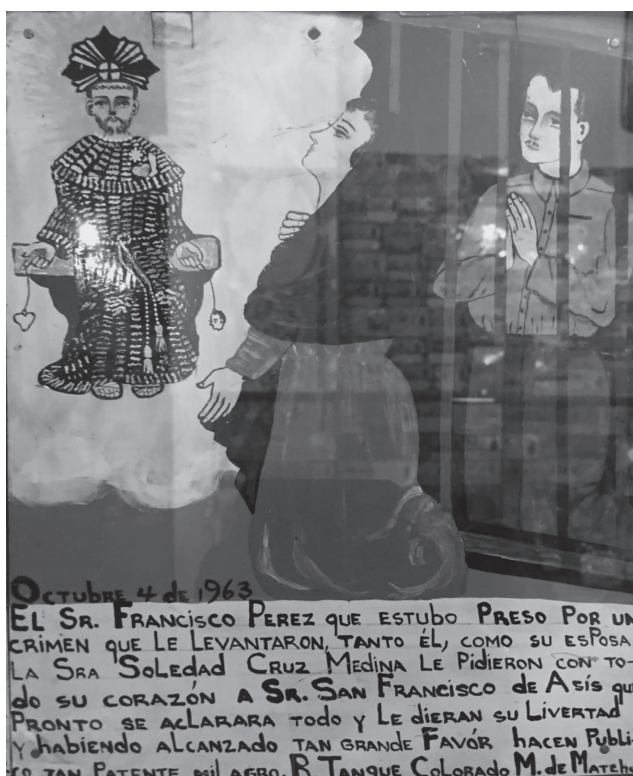 Octubre 4 de 1963
El Sr. Francisco Perez que estubo Preso Por un
crimen que Le Levantaron, tanto él, como su esposa
La Sra Soledad Cruz Medina Le Pidieron con to-
do su corazón a Sr. San Francisco de Asís que
Pronto se aclarara todo y Le dieran su Livertad
y habiendo alcanzado tan grande Favór hacen Publi-
co tan Patente milagro. R. Tanque Colorado M. de